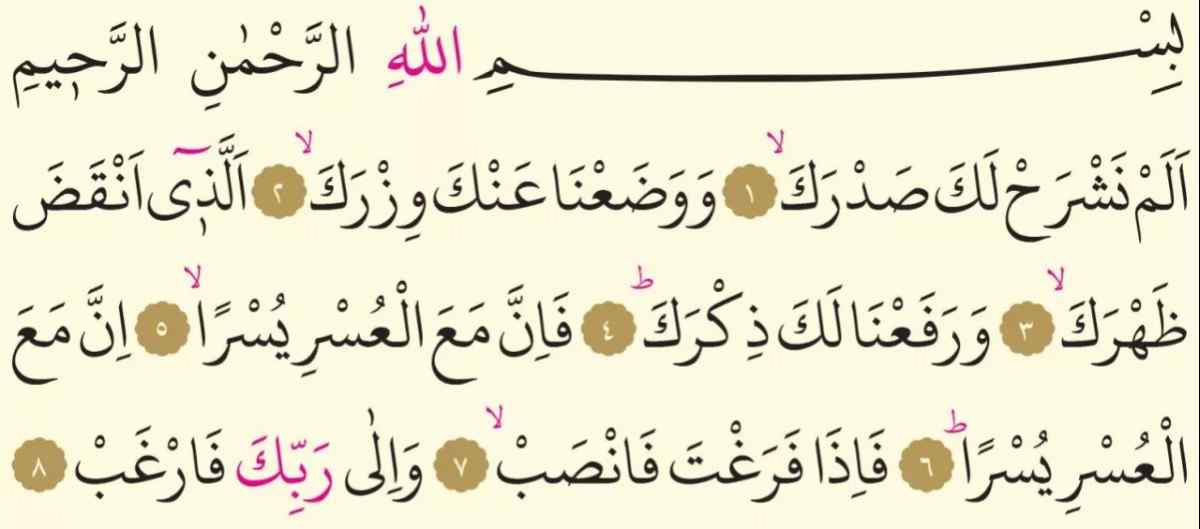 بِسْمِ اللّٰهِ الرَّحْمٰنِ الرَّح۪يمِ
اَلَمْ نَشْرَحْ لَكَ صَدْرَكَۙ ١ وَوَضَعْنَا عَنْكَ وِزْرَكَۙ ٢ اَلَّذ۪ٓى اَنْقَضَ
ظَهْرَكَۙ ٣ وَرَفَعْنَا لَكَ ذِكْرَكَۜ ٤ فَاِنَّ مَعَ الْعُسْرِ يُسْرًاۙ ٥ اِنَّ مَعَ
الْعُسْرِ يُسْرًاۜ ٦ فَاِذَا فَرَغْتَ فَانْصَبْۙ ٧ وَاِلٰى رَبِّكَ فَارْغَبْ ٨